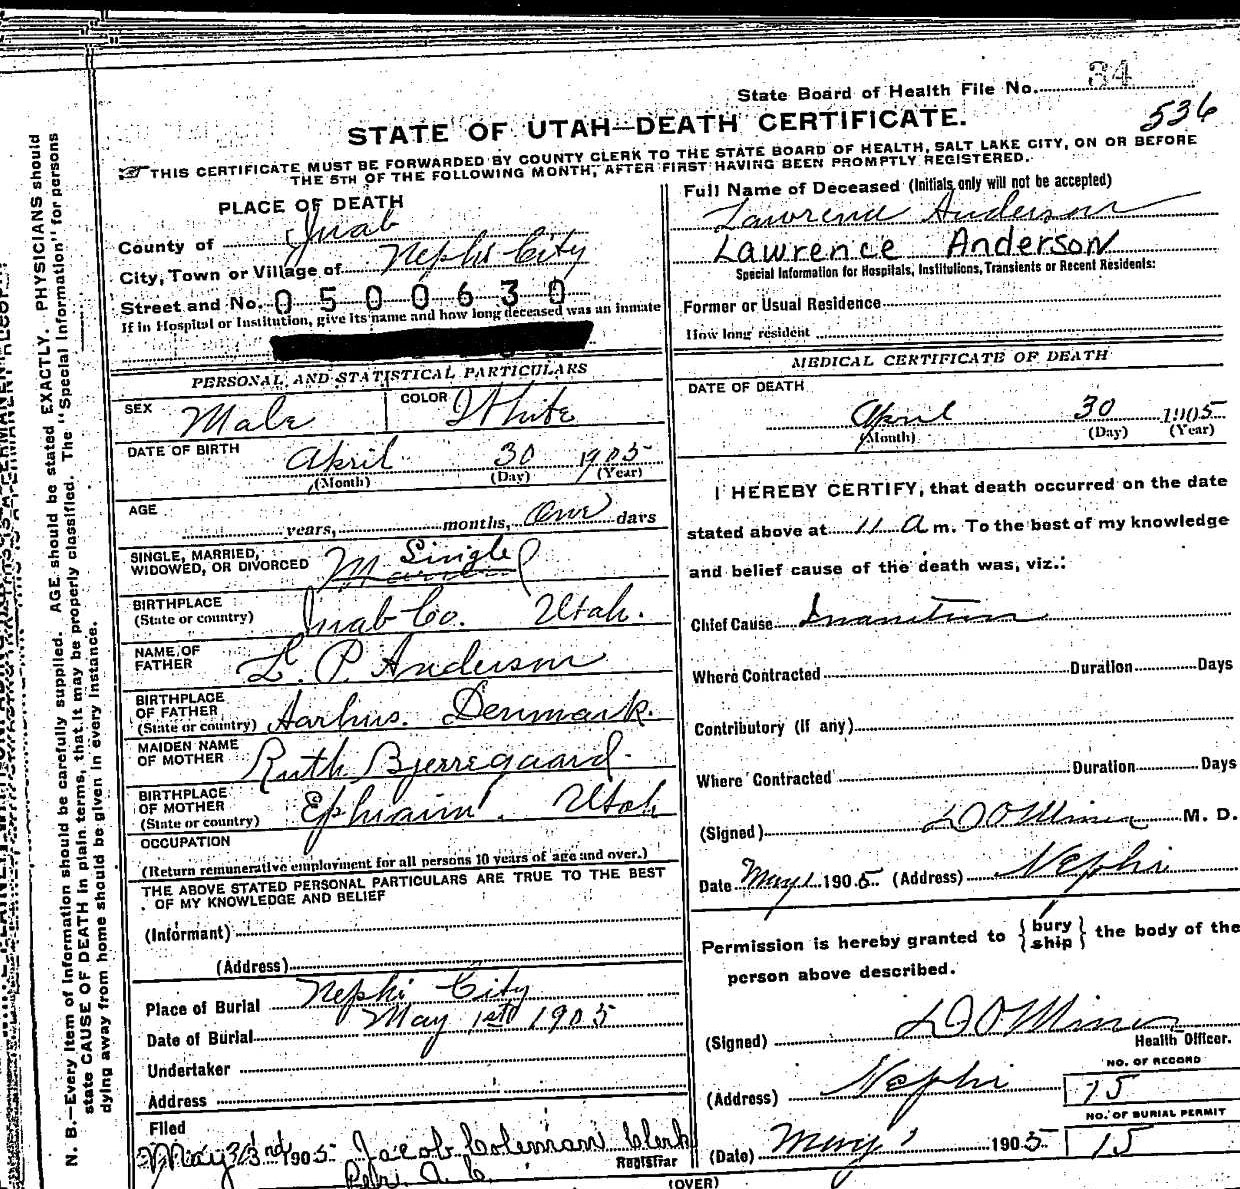 State Board of Health File No. 34
536
STATE OF UTAH—DEATH CERTIFICATE.
THIS CERTIFICATE MUST BE FORWARDED BY COUNTY CLERK TO THE STATE BOARD OF HEALTH, SALT LAKE CITY, ON OR BEFORE
THE 5TH OF THE FOLLOWING MONTH, AFTER FIRST HAVING BEEN PROMPTLY REGISTERED.
PLACE OF DEATH
County of Juab
City, Town or Village of Nephi City
Street and No. 0500630
If in Hospital or Institution, give its name and how long deceased was an inmate
PERSONAL AND STATISTICAL PARTICULARS
SEX Male COLOR White
DATE OF BIRTH
April 30 1905
(Month) (Day) (Year)
AGE
years, months, One days
SINGLE, MARRIED,
WIDOWED, OR DIVORCED Single
BIRTHPLACE
(State or country) Juab Co. Utah.
NAME OF
FATHER L. P. Anderson
BIRTHPLACE
OF FATHER
(State or country) Aarhus. Denmark.
MAIDEN NAME
OF MOTHER Ruth Bjerregaard.
BIRTHPLACE
OF MOTHER
(State or country) Ephraim. Utah
OCCUPATION
(Return remunerative employment for all persons 10 years of age and over.)
THE ABOVE STATED PERSONAL PARTICULARS ARE TRUE TO THE BEST
OF MY KNOWLEDGE AND BELIEF
(Informant)
(Address)
Place of Burial Nephi City
Date of Burial May 1st 1905
Undertaker
Address
Filed
May 3rd 1905 Jacob Coleman Clerk
Registrar
Full Name of Deceased (Initials only will not be accepted)
Lawrence Anderson
Lawrence Anderson
Special Information for Hospitals, Institutions, Transients or Recent Residents:
Former or Usual Residence
How long resident
MEDICAL CERTIFICATE OF DEATH
DATE OF DEATH
April 30 1905
(Month) (Day) (Year)
I HEREBY CERTIFY, that death occurred on the date
stated above at 11 a m. To the best of my knowledge
and belief cause of the death was, viz.:
Chief Cause Inanition
Where Contracted Duration Days
Contributory (if any)
Where Contracted Duration Days
(Signed) D O Miner M. D.
Date May 1 1905 (Address) Nephi
Permission is hereby granted to { bury ship } the body of the
person above described.
(Signed) D O Miner
Health Officer.
(Address) Nephi
NO. OF RECORD
15
NO. OF BURIAL PERMIT
(Date) May 1 1905 15
(OVER)
N. B.—Every item of information should be carefully supplied. AGE should be stated EXACTLY. PHYSICIANS should
state CAUSE OF DEATH in plain terms, that it may be properly classified. The "Special Information" for persons
dying away from home should be given in every instance.